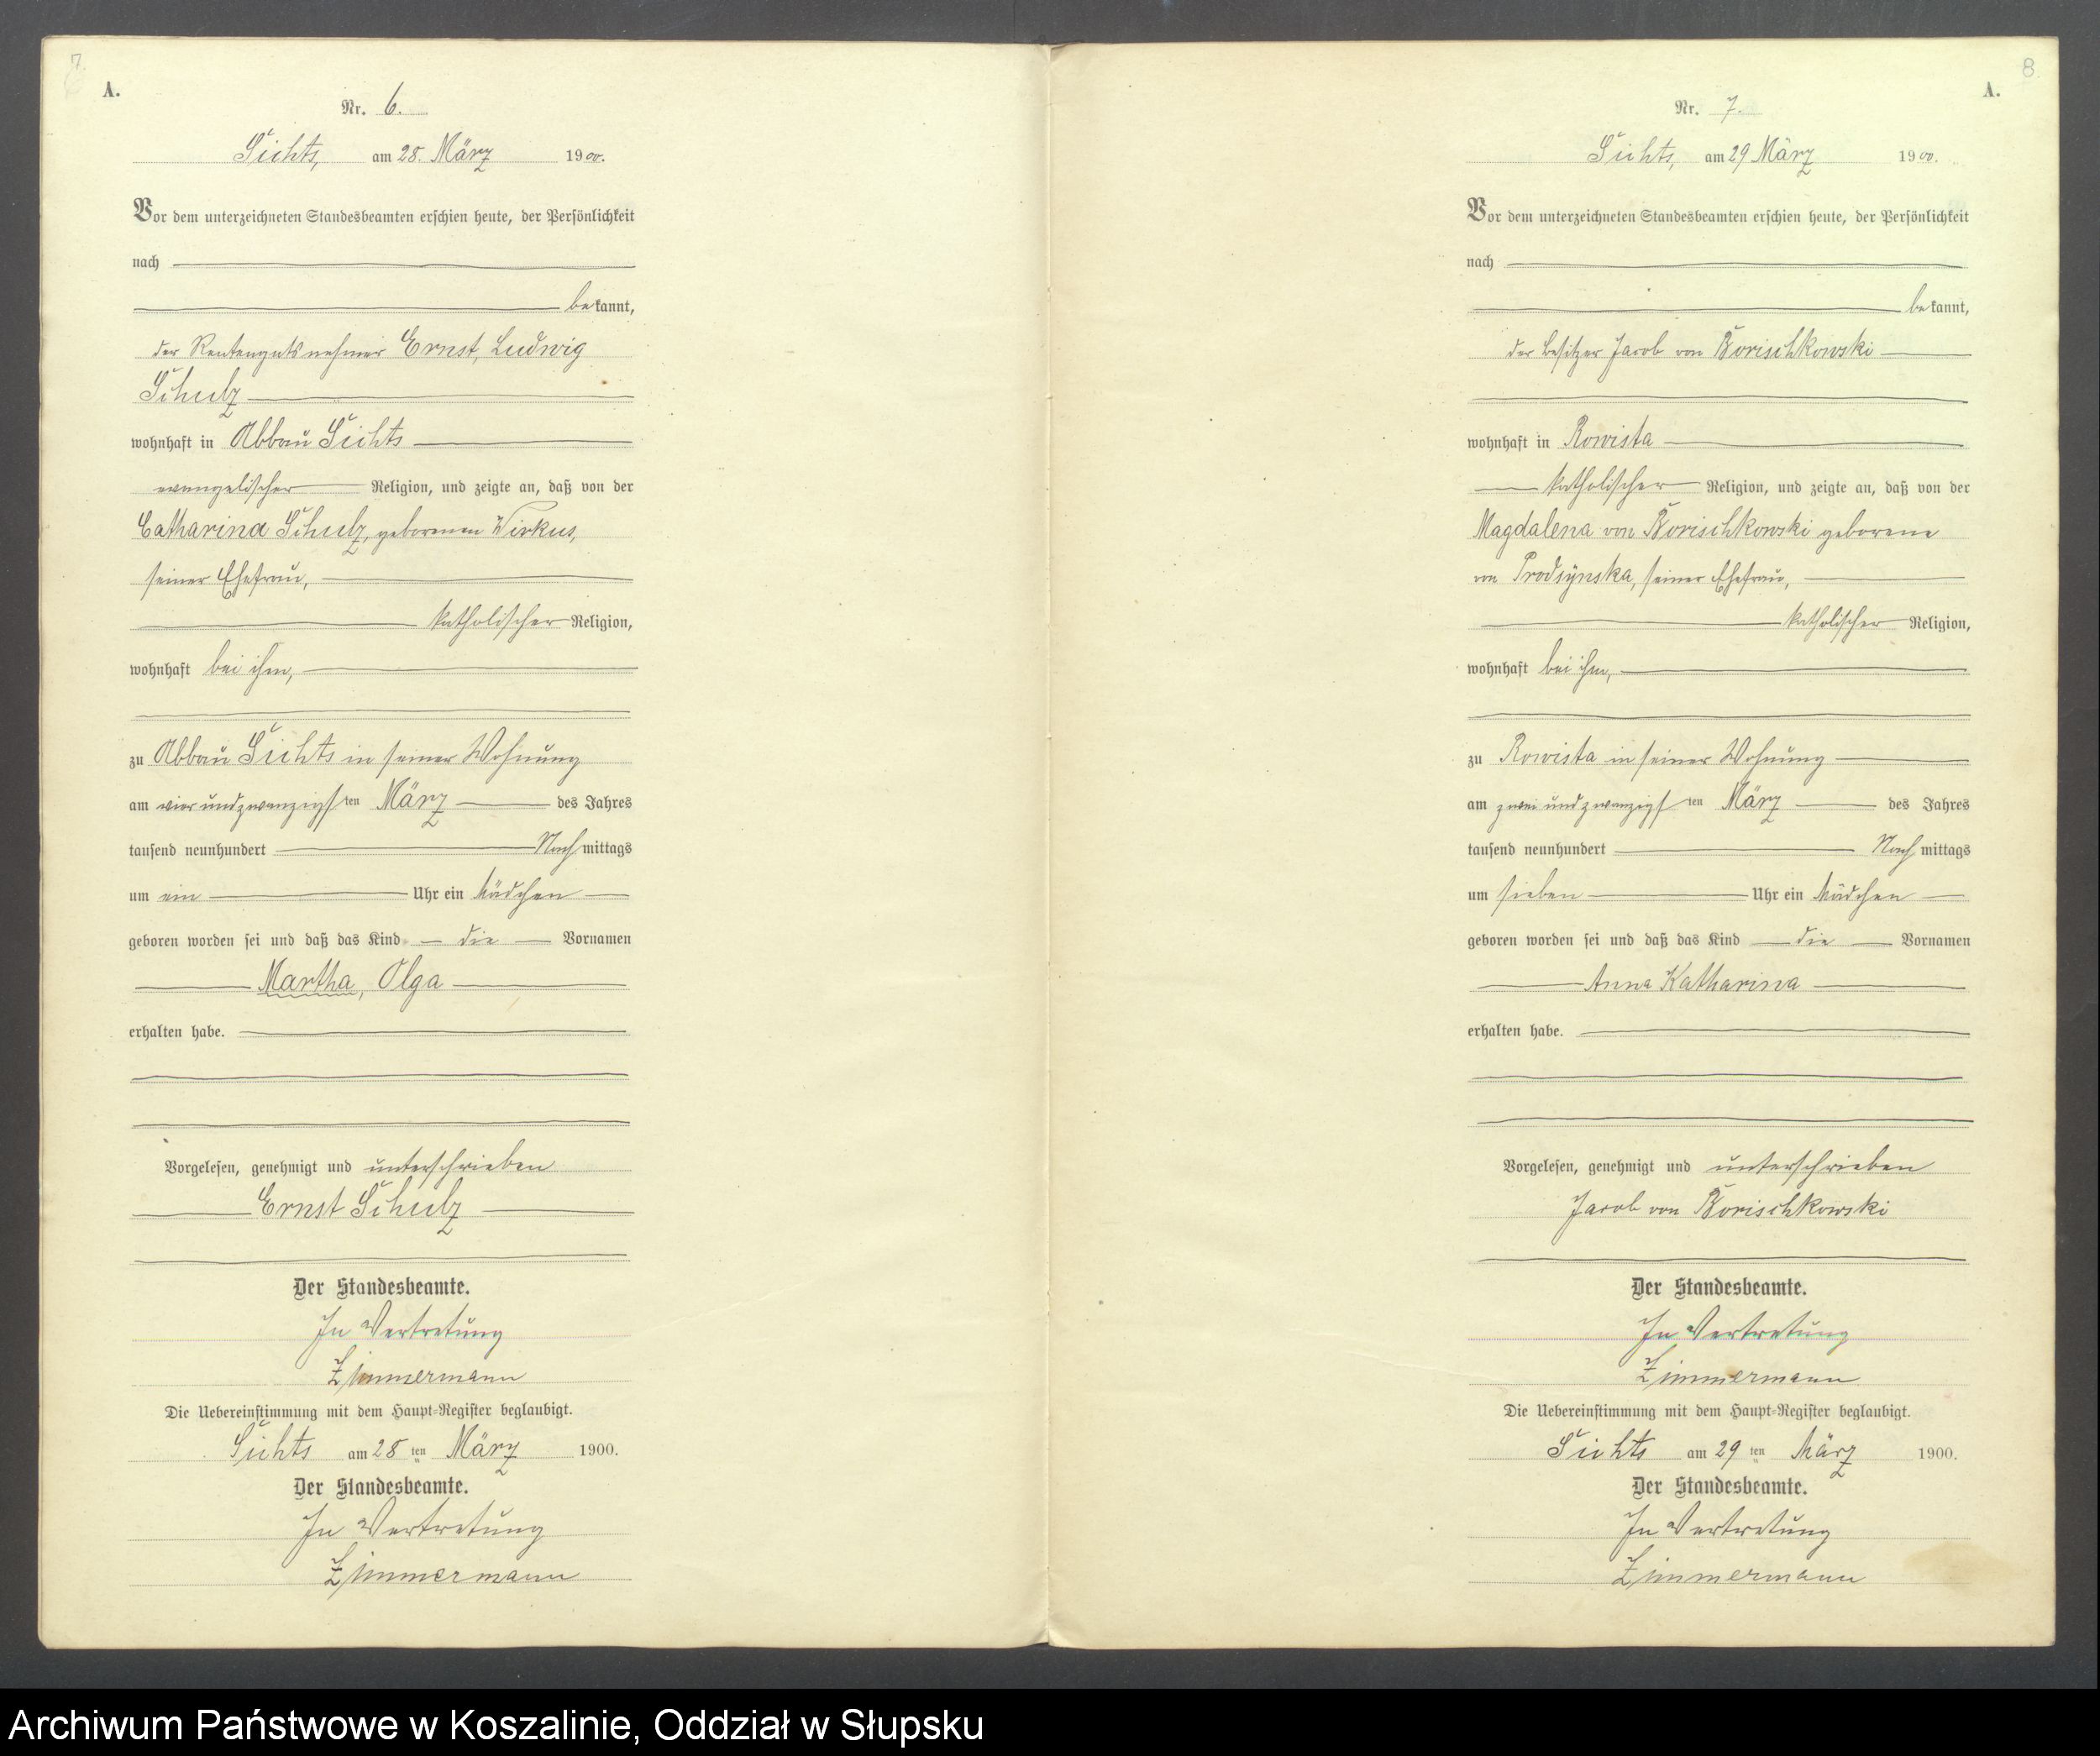 7
A.
Nr. 6.
Sichts, am 28. März 1900.
Vor dem unterzeichneten Standesbeamten erschien heute, der Persönlichkeit
nach
bekannt,
der Rentengutsnehmer Ernst, Ludwig
Schulz
wohnhaft in Abbau Sichts
evangelischer Religion, und zeigte an, daß von der
Catharina Schulz, geborenen Wirkus,
seiner Ehefrau,
katholischer Religion,
wohnhaft bei ihm,
zu Abbau Sichts in seiner Wohnung
am vierundzwanzigsten März des Jahres
tausend neunhundert Nachmittags
um ein Uhr ein Mädchen
geboren worden sei und daß das Kind die Vornamen
Martha, Olga
erhalten habe.
Vorgelesen, genehmigt und unterschrieben
Ernst Schulz
Der Standesbeamte.
In Vertretung
Zimmermann
Die Uebereinstimmung mit dem Haupt-Register beglaubigt.
Sichts am 28ten März 1900.
Der Standesbeamte.
In Vertretung
Zimmermann
8
A.
Nr. 7.
Sichts, am 29 März 1900.
Vor dem unterzeichneten Standesbeamten erschien heute, der Persönlichkeit
nach
bekannt,
der Besitzer Jacob von Borischkowski
wohnhaft in Rowista
katholischer Religion, und zeigte an, daß von der
Magdalena von Borischkowski geborene
von Prodsynska, seiner Ehefrau,
katholischer Religion,
wohnhaft bei ihm,
zu Rowista in seiner Wohnung
am zweiundzwanzigsten März des Jahres
tausend neunhundert Nachmittags
um sieben Uhr ein Mädchen
geboren worden sei und daß das Kind die Vornamen
Anna Katharina
erhalten habe.
Vorgelesen, genehmigt und unterschrieben
Jacob von Borischkowski
Der Standesbeamte.
In Vertretung
Zimmermann
Die Uebereinstimmung mit dem Haupt-Register beglaubigt.
Sichts am 29ten März 1900.
Der Standesbeamte.
In Vertretung
Zimmermann
Archiwum Państwowe w Koszalinie, Oddział w Słupsku